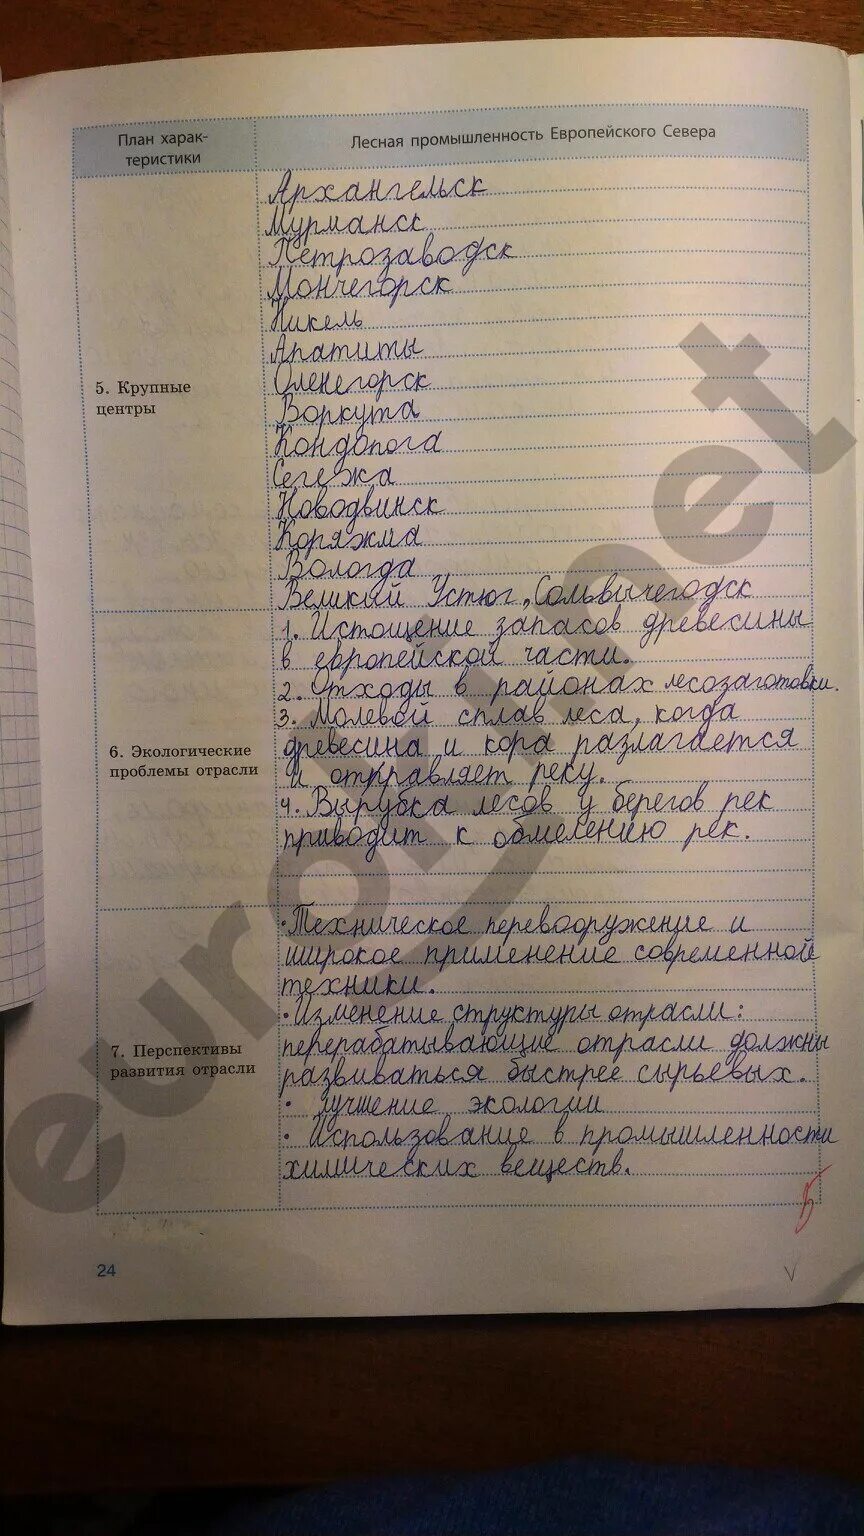 План харак-
теристики
Лесная промышленность Европейского Севера
5. Крупные
центры
Архангельск
Мурманск
Петрозаводск
Мончегорск
Никель
Апатиты
Оленегорск
Воркута
Кондопога
Сегежа
Новодвинск
Коряжма
Вологда
Великий Устюг, Сольвычегодск
6. Экологические
проблемы отрасли
1. Истощение запасов древесины
в европейской части.
2. Отходы в районах лесозаготовки.
3. Молевой сплав леса, когда
древесина и кора разлагается
и отравляет реку.
4. Вырубка лесов у берегов рек
приводит к обмелению рек.
7. Перспективы
развития отрасли
• Техническое перевооружение и
широкое применение современной
техники.
• Изменение структуры отрасли:
перерабатывающие отрасли должны
развиваться быстрее сырьевых.
• лучшение экологии
• Использование в промышленности
химических веществ.
5
24
euroki.net